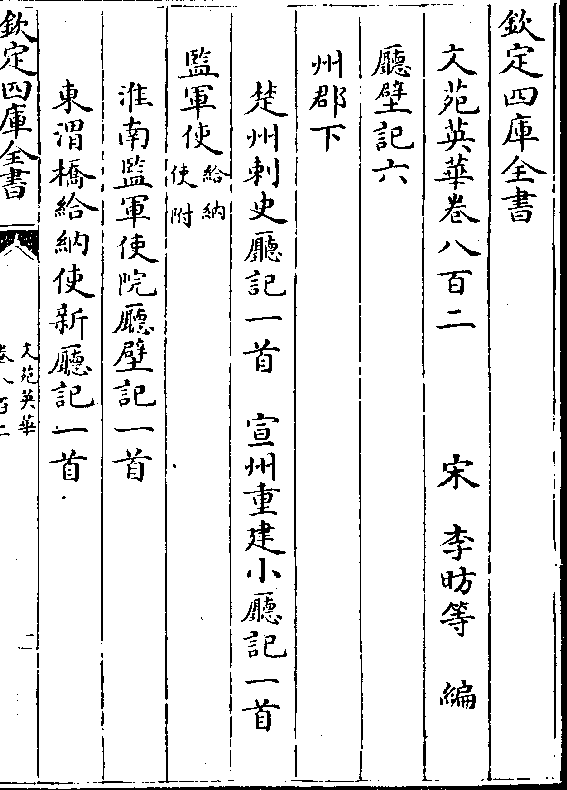 欽定四庫全書
文苑英華卷八百二　宋　李昉等　編
廳壁記六
州郡下
楚州刺史廳記一首　宣州重建小廳記一首
監軍使給納使附
淮南監軍使院廳壁記一首
東渭橋給納使新廳記一首
欽定四庫全書
文苑英華
卷八百二